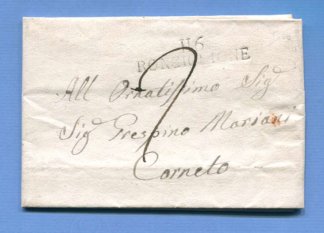 116
RONCIGLIONE
2
All Ornatissimo Sig
Sig Crespino Mariani
Corneto